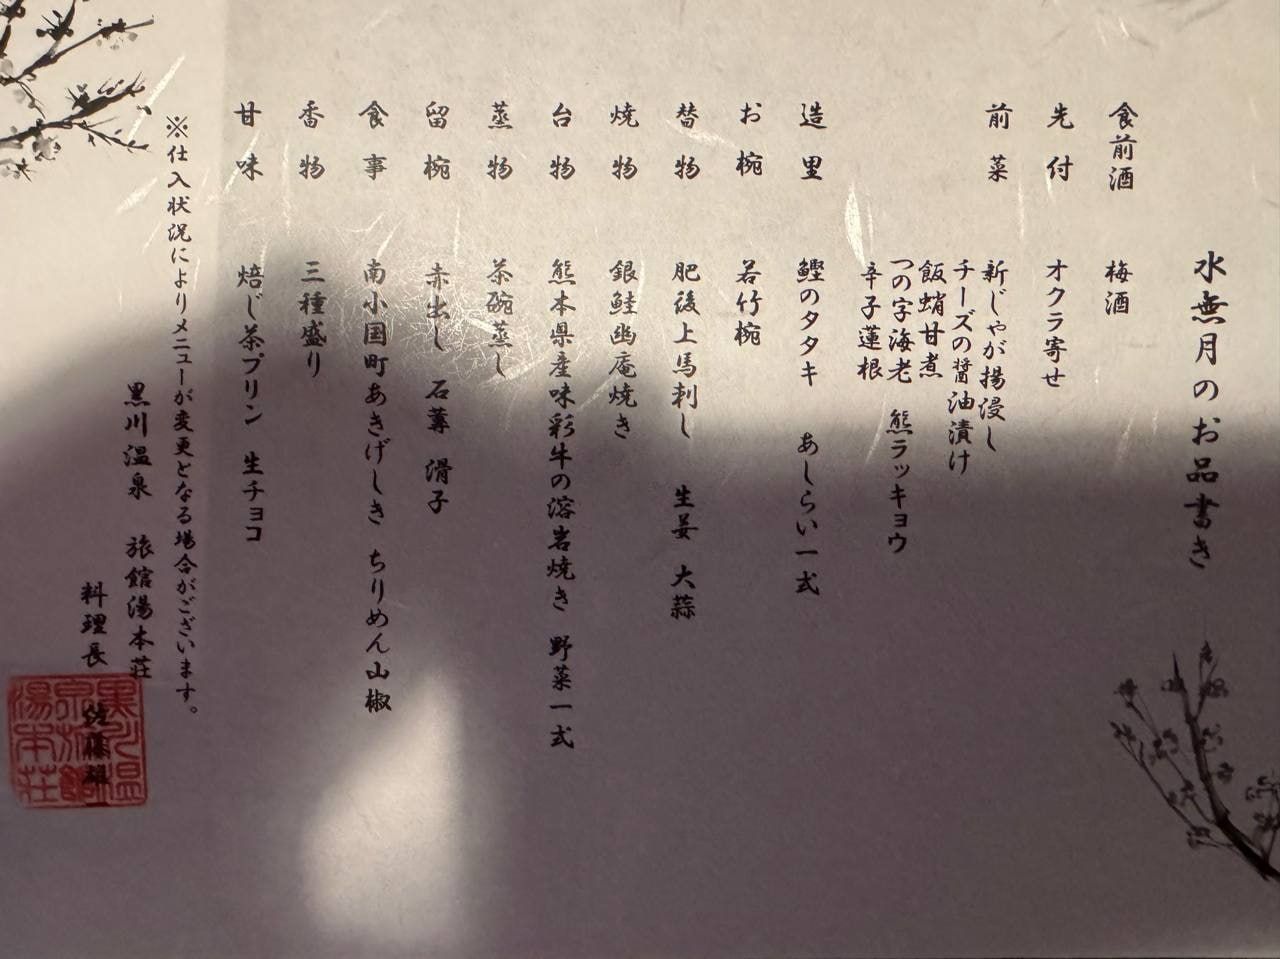 水無月のお品書き
食前酒　梅酒
先付　オクラ寄せ
前菜　新じゃが揚浸し
チーズの醤油漬け
飯蛸甘煮
つの字海老　熊ラッキョウ
辛子蓮根
造里　鰹のタタキ　あしらい一式
お椀　若竹椀
替物　肥後上馬刺し　生姜　大蒜
焼物　銀鮭幽庵焼き
台物　熊本県産味彩牛の溶岩焼き　野菜一式
蒸物　茶碗蒸し
留椀　赤出し　石蓴　滑子
食事　南小国町あきげしき　ちりめん山椒
香物　三種盛り
甘味　焙じ茶プリン　生チョコ
※仕入状況によりメニューが変更となる場合がございます。
黒川温泉　旅館湯本荘
料理長　佐藤雄一
黒川温泉旅館湯本荘